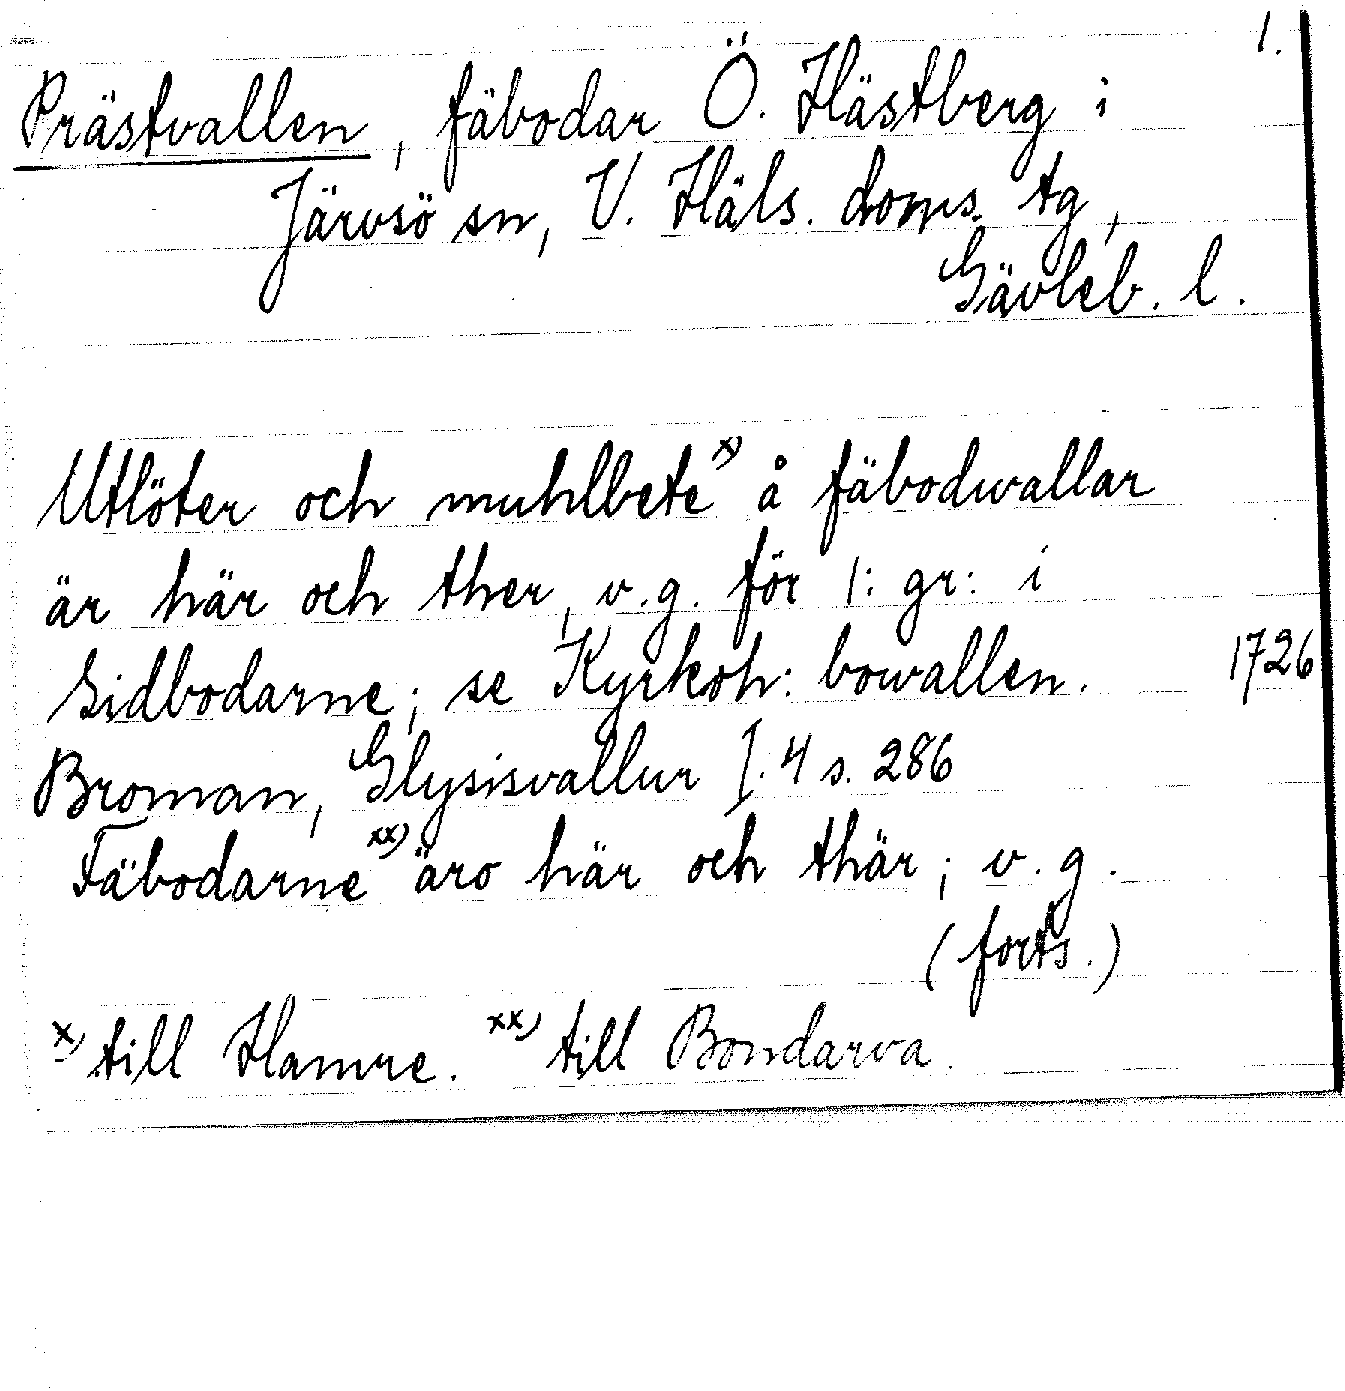 1.
Prästvallen, fäbodar Ö. Hästberg i
Järvsö sn, V. Häls. doms. tg,
Gävleb. l.
Utlöter och muhlbete x) å fäbodwallar
är här och ther, v.g. för 1: gr: i
Sidbodarne; se Kyrkoh: bowallen. 1726
Broman, Glysisvallur I. 4 s. 286
Fäbodarne xx) äro här och thär; v.g.
(forts.)
x) till Hamre. xx) till Bondarva.